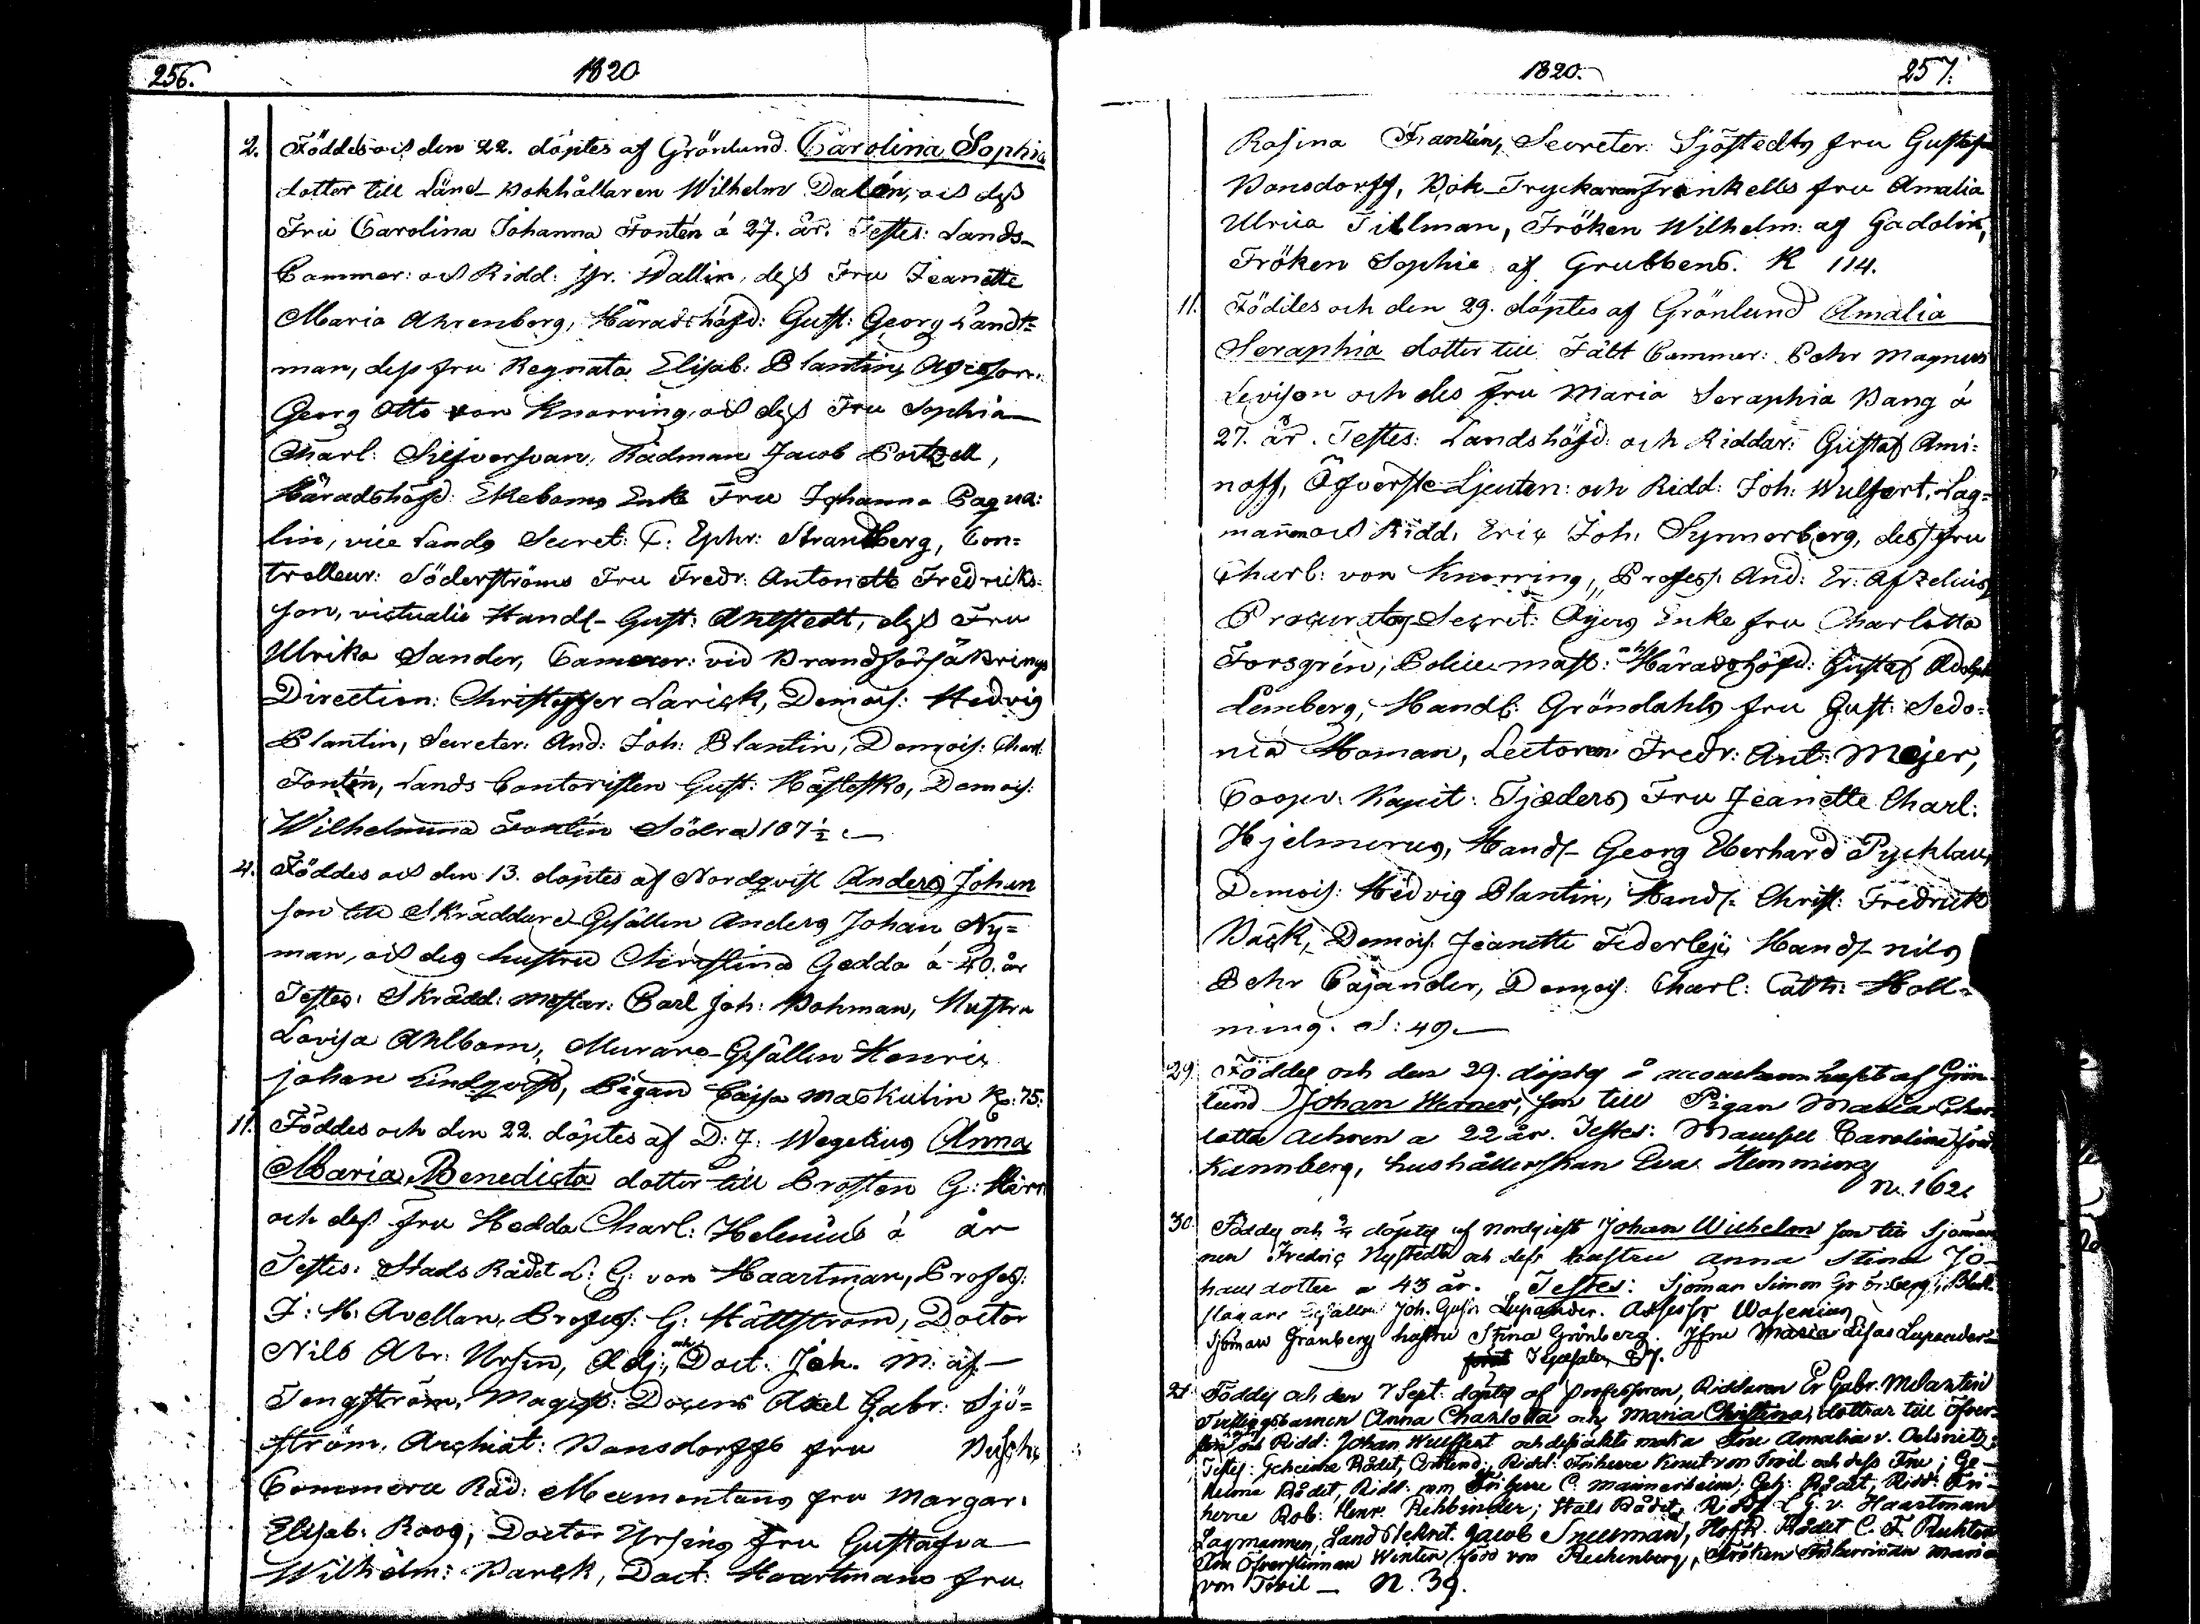 256.
1820
2. Föddes och den 22. döptes af Grönlund Carolina Sophia
dotter till Länd-Bokhållaren Wilhelm Dalén, och dess
Fru Carolina Johanna Fontén á 27. år. Testes: Lands-
Cammer: och Ridd: Wallin, dess Fru Jeanette
Maria Ahrenberg, Häradshöfd: Gust: Georg Landt=
man, dess fru Regnata Elisab: Plantin, Assessor
Georg Otto von Knorring, och dess Fru Sophia
Charl: Rådman Jacob Portzell,
Häradshöfd: Ekeboms Enka Fru Johanna Pagua:
lin, vice Lands Secret: C: Ephr: Strandberg, Con=
trolleur: Söderströms Fru Fredr: Antonette Fredricks=
son, victualie Handl- Gust: Ahlstedt, dess Fru
Ulrika Sander, Camerer: vid Brandförsäkrings
Direction: Christoffer Larick, Demois: Hedvig
Plantin, Secreter: And: Joh: Plantin, Demois: Charl:
Fontén, Lands Contoristen Gust: Hästesko, Demois:
Wilhelmina Fontén Södra 107 ½
4. Föddes och den 13. döptes af Nordqvist Anders Johan
son till Skräddare Gesällen Anders Johan Ny=
man, och des hustru Christina Gedda á 40. år
Testes: Skrädd: mästar: Carl Joh: Bohman, Hustru
Lovisa Ahlbom, Murare-Gesällen Henric
Johan Lindqvist, Pigan Cajsa Maskulin R: 75:
11. Föddes och den 22. döptes af D: J: Wegelius Anna
Maria Benedicta dotter till Prosten G:
och dess fru Hedda Charl: Helenius á år
Testes: Stads Rådet L: G: von Haartman, Profess:
J: H: Avellan, Profess: G: Hällström, Doctor
Nils Abr: Ursin, Adj: och Doct: Joh. M: af
Tengström, Magist: Docens Axel Gabr: Sjö=
ström, Archiat: Bonsdorffs fru
Commerce Råd: fru Margar:
Elisab: Roos, Doctor Ursins fru Gustafva
Wilhelm: Barck, Doct: Haartmans fru
1820.
257.
Rosina Franzén, Secreter: Sjöstedts fru Gustafva
Bonsdorff, Bok-Tryckaren Frenkells fru Amalia
Ulrica Tillman, Fröken Wilhelm: af Gadolin,
Fröken Sophie af Grubbens. K 114.
11. Föddes och den 29. döptes af Grönlund Amalia
Seraphia dotter till Fält Cammer: Pehr Magnus
Levison och des fru Maria Seraphia Bang á
27. år. Testes: Landshöfd: och Riddar: Gustaf Ami=
noff, Öfverste-Ljeuten: och Ridd: Joh: Wulfert, Lag=
mannen och Ridd: Eric Joh: Synnerberg, dess fru
Charl: von Knorring, Profess: And: Er: Afzelius,
Procurators-Secret: Enke fru Charlotta
Forsgrén, Police mäst: och Häradshöfd: Gustaf Adolph
Lemberg, Handl: Gröndahls fru Gust: Sedo=
nia Homan, Lectoren Fredr: Ant: Mejer,
Cooper: Kapit: Tjæders Fru Jeanette Charl:
Hjelmerus, Handl- Georg Eberhard Pychlau,
Demois: Hedvig Plantin, Handl- Christ: Fredrick
Bäck, Demois: Jeanette Federley, Handl- Nils
Pehr Cajander, Demois: Charl: Cath: Holl=
ming. 49.
29. Föddes och den 29. döptes å af Grön
lund Johan Werner, son till Pigan Maria Char
lotta a 22 år. Testes: Mamsell Carolina
Kannberg, hushållerskan Eva Hemming
N. 162
30. Föddes och döptes af Nordqvist Johan Wilhelm son till Sjöman
nen Fredric Nystedt och dess hustru Anna Stina Jo-
hans dotter a 43 år. Testes: Sjöman Simon Grönberg, Bleck
slagare Gesällen Joh. Gust: Lupander. Assessor Wasenius
Sjöman Granberg hustru Stina Grönberg. Jfru Maria Lisa Lupander
87.
21. Föddes och den 7 Sept: döptes af Professoren, Riddaren Er Gabr: Melartin
Tvillingsbarnen Anna Charlotta och Maria Christina, döttrar till Öfver
Ridd: Johan Wulffert och dess äkta maka Fru Amalia v. Oelsnitz;
Testes: Geheime Rådet, Ridd: Friherre Knut von Troil och dess Fru; Ge-
heime Rådet, Ridd: Friherre C. Mannerheim; Geh: Rådet, Ridd: Fri-
herre Rob: Henr: Rehbinder; Stats Rådet, Ridd: L G. v. Haartman
Lagmannen, Land Sekret. Jacob Snellman, Rådet C. F. Richter
Fru Öfverstinnan Winter född von Rechenberg, Fröken Friherrinnan Maria
von Troil - N. 39.